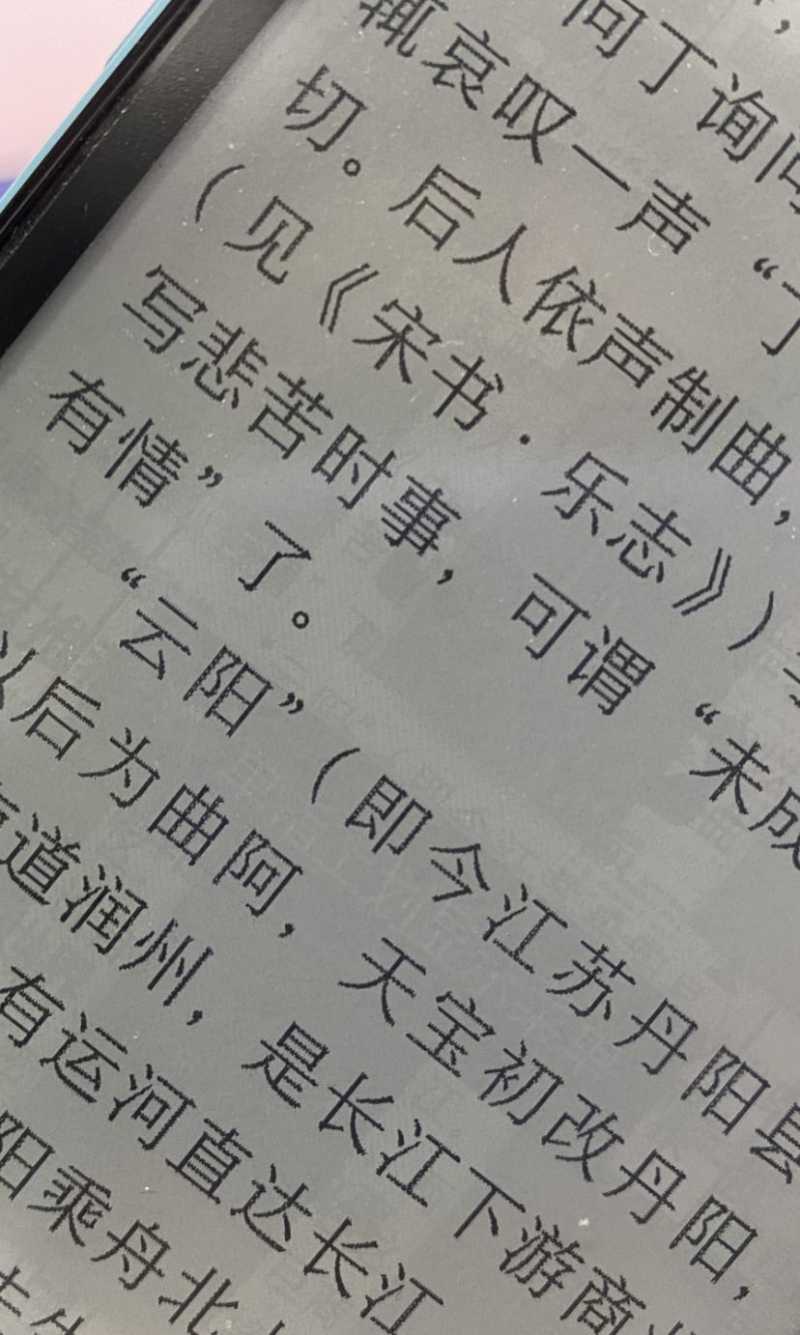 问丁询问
辄哀叹一声“丁
切。后人依声制曲，
（见《宋书·乐志》）
写悲苦时事，可谓“未成
有情”了。
“云阳”（即今江苏丹阳县
以后为曲阿，天宝初改丹阳，
道润州，是长江下游商
有运河直达长江
阳乘舟北